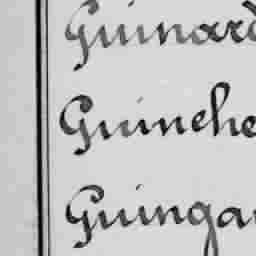 Guinard
Guinche
Guingan